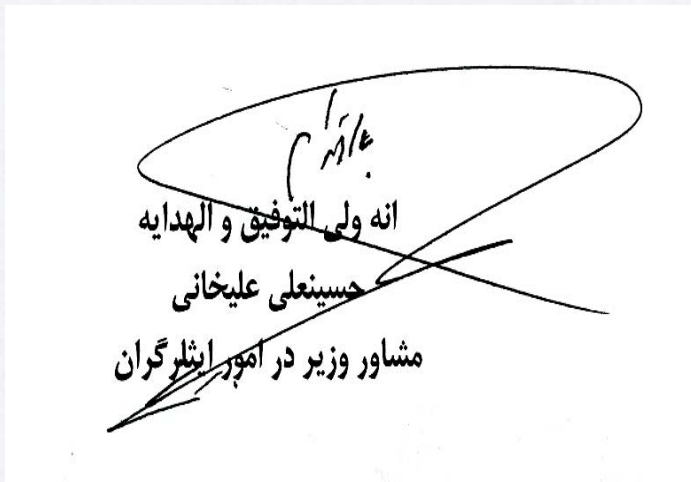 با احترام
انه ولی التوفیق و الهدایه
حسینعلی علیخانی
مشاور وزیر در امور ایثارگران